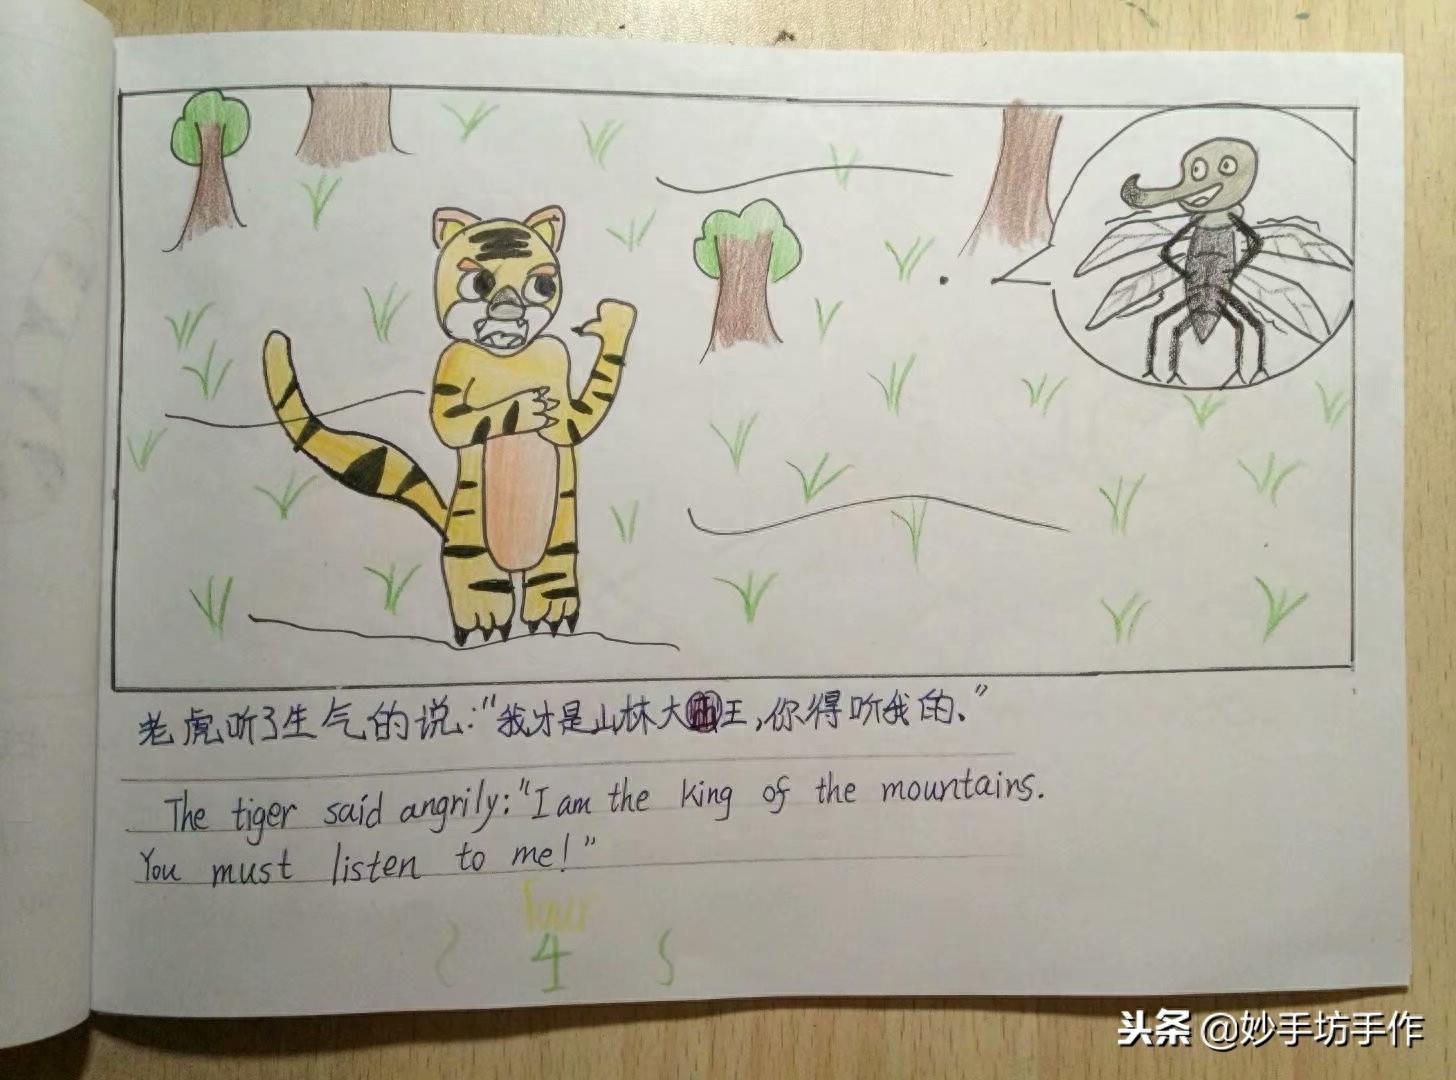 老虎听了生气的说:“我才是山林大王,你得听我的.”
The tiger said angrily:"I am the king of the mountains.
You must listen to me!"
four
4
头条 @妙手坊手作